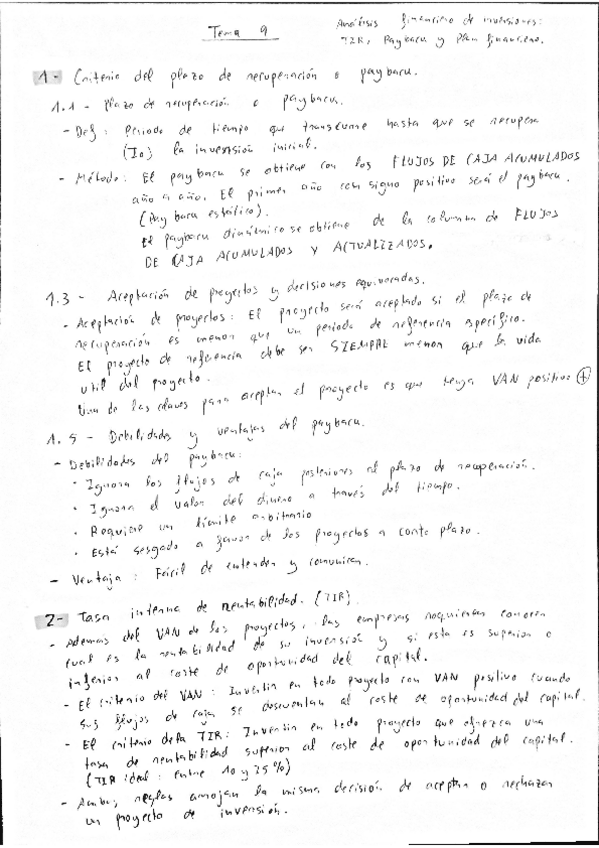 Tema 9
Análisis financiero de inversiones:
TIR, Payback y Plan financiero.
1- Criterio del plazo de recuperación o payback.
1.1 - Plazo de recuperación o payback.
- Def: Periodo de tiempo que transcurre hasta que se recupera
(Io) la inversión inicial.
- Método: El payback se obtiene con los FLUJOS DE CAJA ACUMULADOS
año a año. El primer año con signo positivo será el payback.
(Payback estático).
El payback dinámico se obtiene de la columna de FLUJOS
DE CAJA ACUMULADOS Y ACTUALIZADOS.
1.3 - Aceptación de proyectos y decisiones equivocadas.
- Aceptación de proyectos: El proyecto será aceptado si el plazo de
recuperación es menor que un periodo de referencia específico.
El proyecto de referencia debe ser SIEMPRE menor que la vida
util del proyecto.
Una de las claves para aceptar el proyecto es que tenga VAN positivo (+)
1.5 - Debilidades y ventajas del payback.
- Debilidades del payback:
· Ignora los flujos de caja posteriores al plazo de recuperación.
· Ignora el valor del dinero a través del tiempo.
· Requiere un límite arbitrario
· Está sesgado a favor de los proyectos a corto plazo.
- Ventaja: Fácil de entender y comunicar.
2- Tasa interna de rentabilidad. (TIR)
- Ademas del VAN de los proyectos, las empresas requieren conocer
cual es la rentabilidad de su inversión y si esta es superior o
inferior al coste de oportunidad del capital.
- El criterio del VAN: Invertir en todo proyecto con VAN positivo cuando
sus flujos de caja se descuentan al coste de oportunidad del capital.
- El criterio de la TIR: Invertir en todo proyecto que ofrezca una
tasa de rentabilidad superior al coste de oportunidad del capital.
(TIR ideal: entre 10 y 25%)
- Ambas reglas arrojan la misma decisión de aceptar o rechazar
un proyecto de inversión.